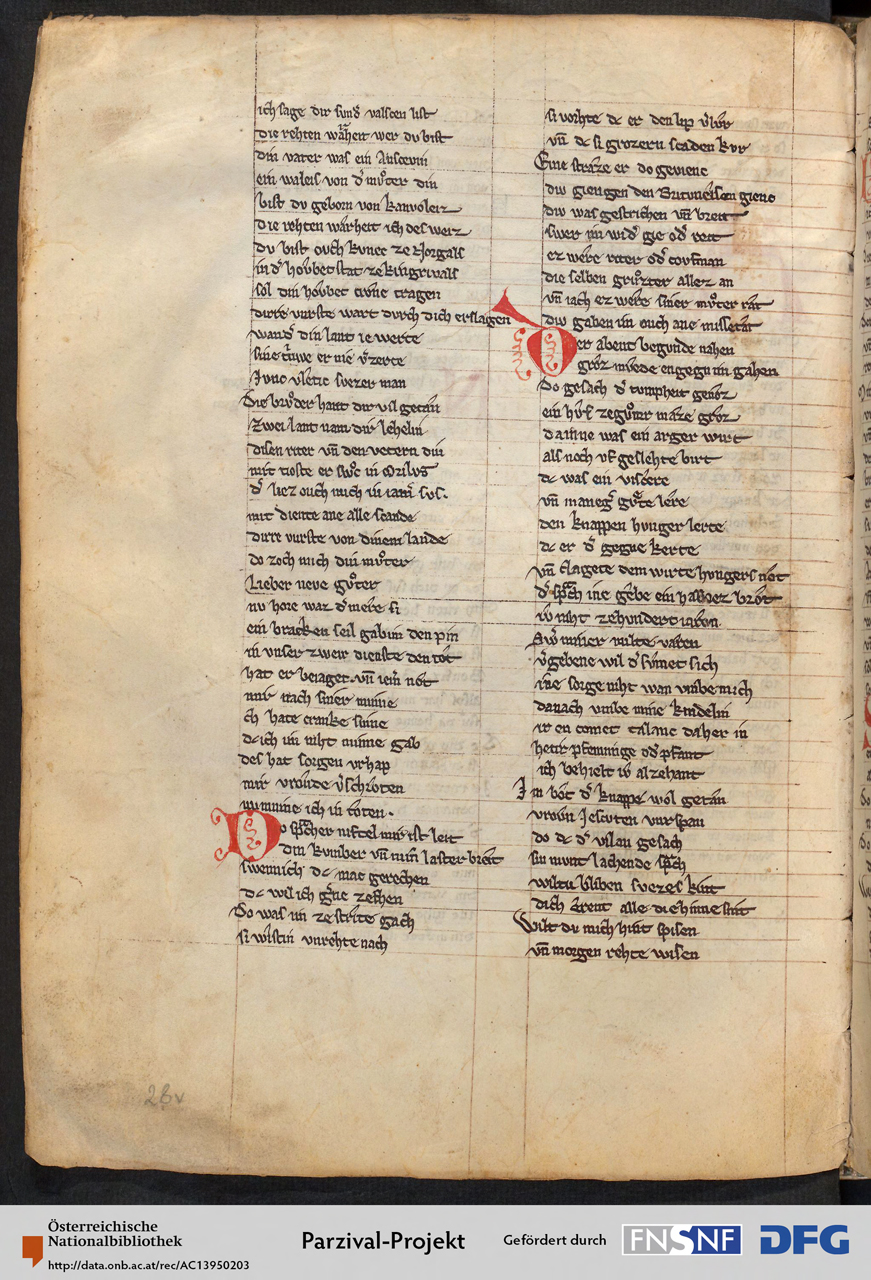 ich sage dir sund᷑ valscen list
die rehten warheit wer du bist
din vater was ein Anscevin
ein waleis von d᷑ mvͦter din
bist dv geborn von kanvoleiz
die rehten warheit ich des weiz
dv bist ovch kvnec ze Norgals
in d᷑ hovbetstat ze kingriuals
sol din hovbet crone tragen
dirre vurste wart durch dich erslagen
wand᷑ din lant ie werte
sine truwe er nie v᷑zerte
Junc vletic svezer man
Die brvͦder hant dir vil getan
Zwei lant nam dir lehelin
disen riter vn̄ den vetern din
mit tioste er slvͦc in Orilus
d᷑ liez ovch mich in iam᷑ sus.
mir diente ane alle scande
dirre vurste von dinem lande
do zoch mich din mvͦter
Lieber neve gvͦter
nv hore waz d᷑ mere si
ein bracken seil gab im den pin
in vnser zweir dienste den tot
hat er beiaget. vn̄ iem᷑ not
mir nach siner minne
ch hate cranke sinne
dc ich im niht minne gab
des hat sorgen vrhap
mir vroude v᷑schroten
nu minne ich in toten.
Do sprach er niftel mir ist leit
din kumber vn̄ mim laster breit
swennich dc mac gerechen
dc wil ich g᷑ne zechen
Do was im ze strite gach
si wistin vnrehte nach
si vorhte dc er den lip v᷑lur
vn̄ dc si grozern scaden kur
Eine straze er do gevienc
div gieng gen den Britvneisen gienc
div was gestrichen vn̄ breit
swer im wid᷑ gie od᷑ reit
ez were riter od᷑ covfman
die selben grvͦzter allez an
vn̄ iach ez were siner mvͦter rat
div gaben im ouch ane missetat
Der abent begunde nahen
groz mvede engegn im gahen
Do gesach d᷑ tumpheit genoz
ein hvs zegvͦter maze groz
da inne was ein arger wirt
als noch vf geslehte birt
dc was ein viscere
vn̄ maneg᷑ gvͤte lere
den knappen hunger lerte
dc er d᷑ gegne kerte
vn̄ clagete dem wirte hungers not
d᷑ sprach ine gebe ein halbez brot
iv niht zehundert iaren
Sw᷑ miner milte varen
v᷑gebene wil d᷑ sumet sich
ine sorge niht wan vmbe mich
danach vmbe mine kindelin
ir en comet talanc da her in
hetir pfenninge od᷑ pfant
ich behielt iv alzehant
Im bot d᷑ knappe wol getan
vroun Jescuten vurspan
do dc d᷑ vilan gesach
sin munt lachende sprach
wiltu bliben svezes kint
dich erent alle die hinne sint
Wilt du mich hint spisen
vn̄ morgen rehte wisen
28v
Österreichische
Nationalbibliothek
http://data.onb.ac.at/rec/AC13950203
Parzival-Projekt
Gefördert durch
FNSNF
DFG